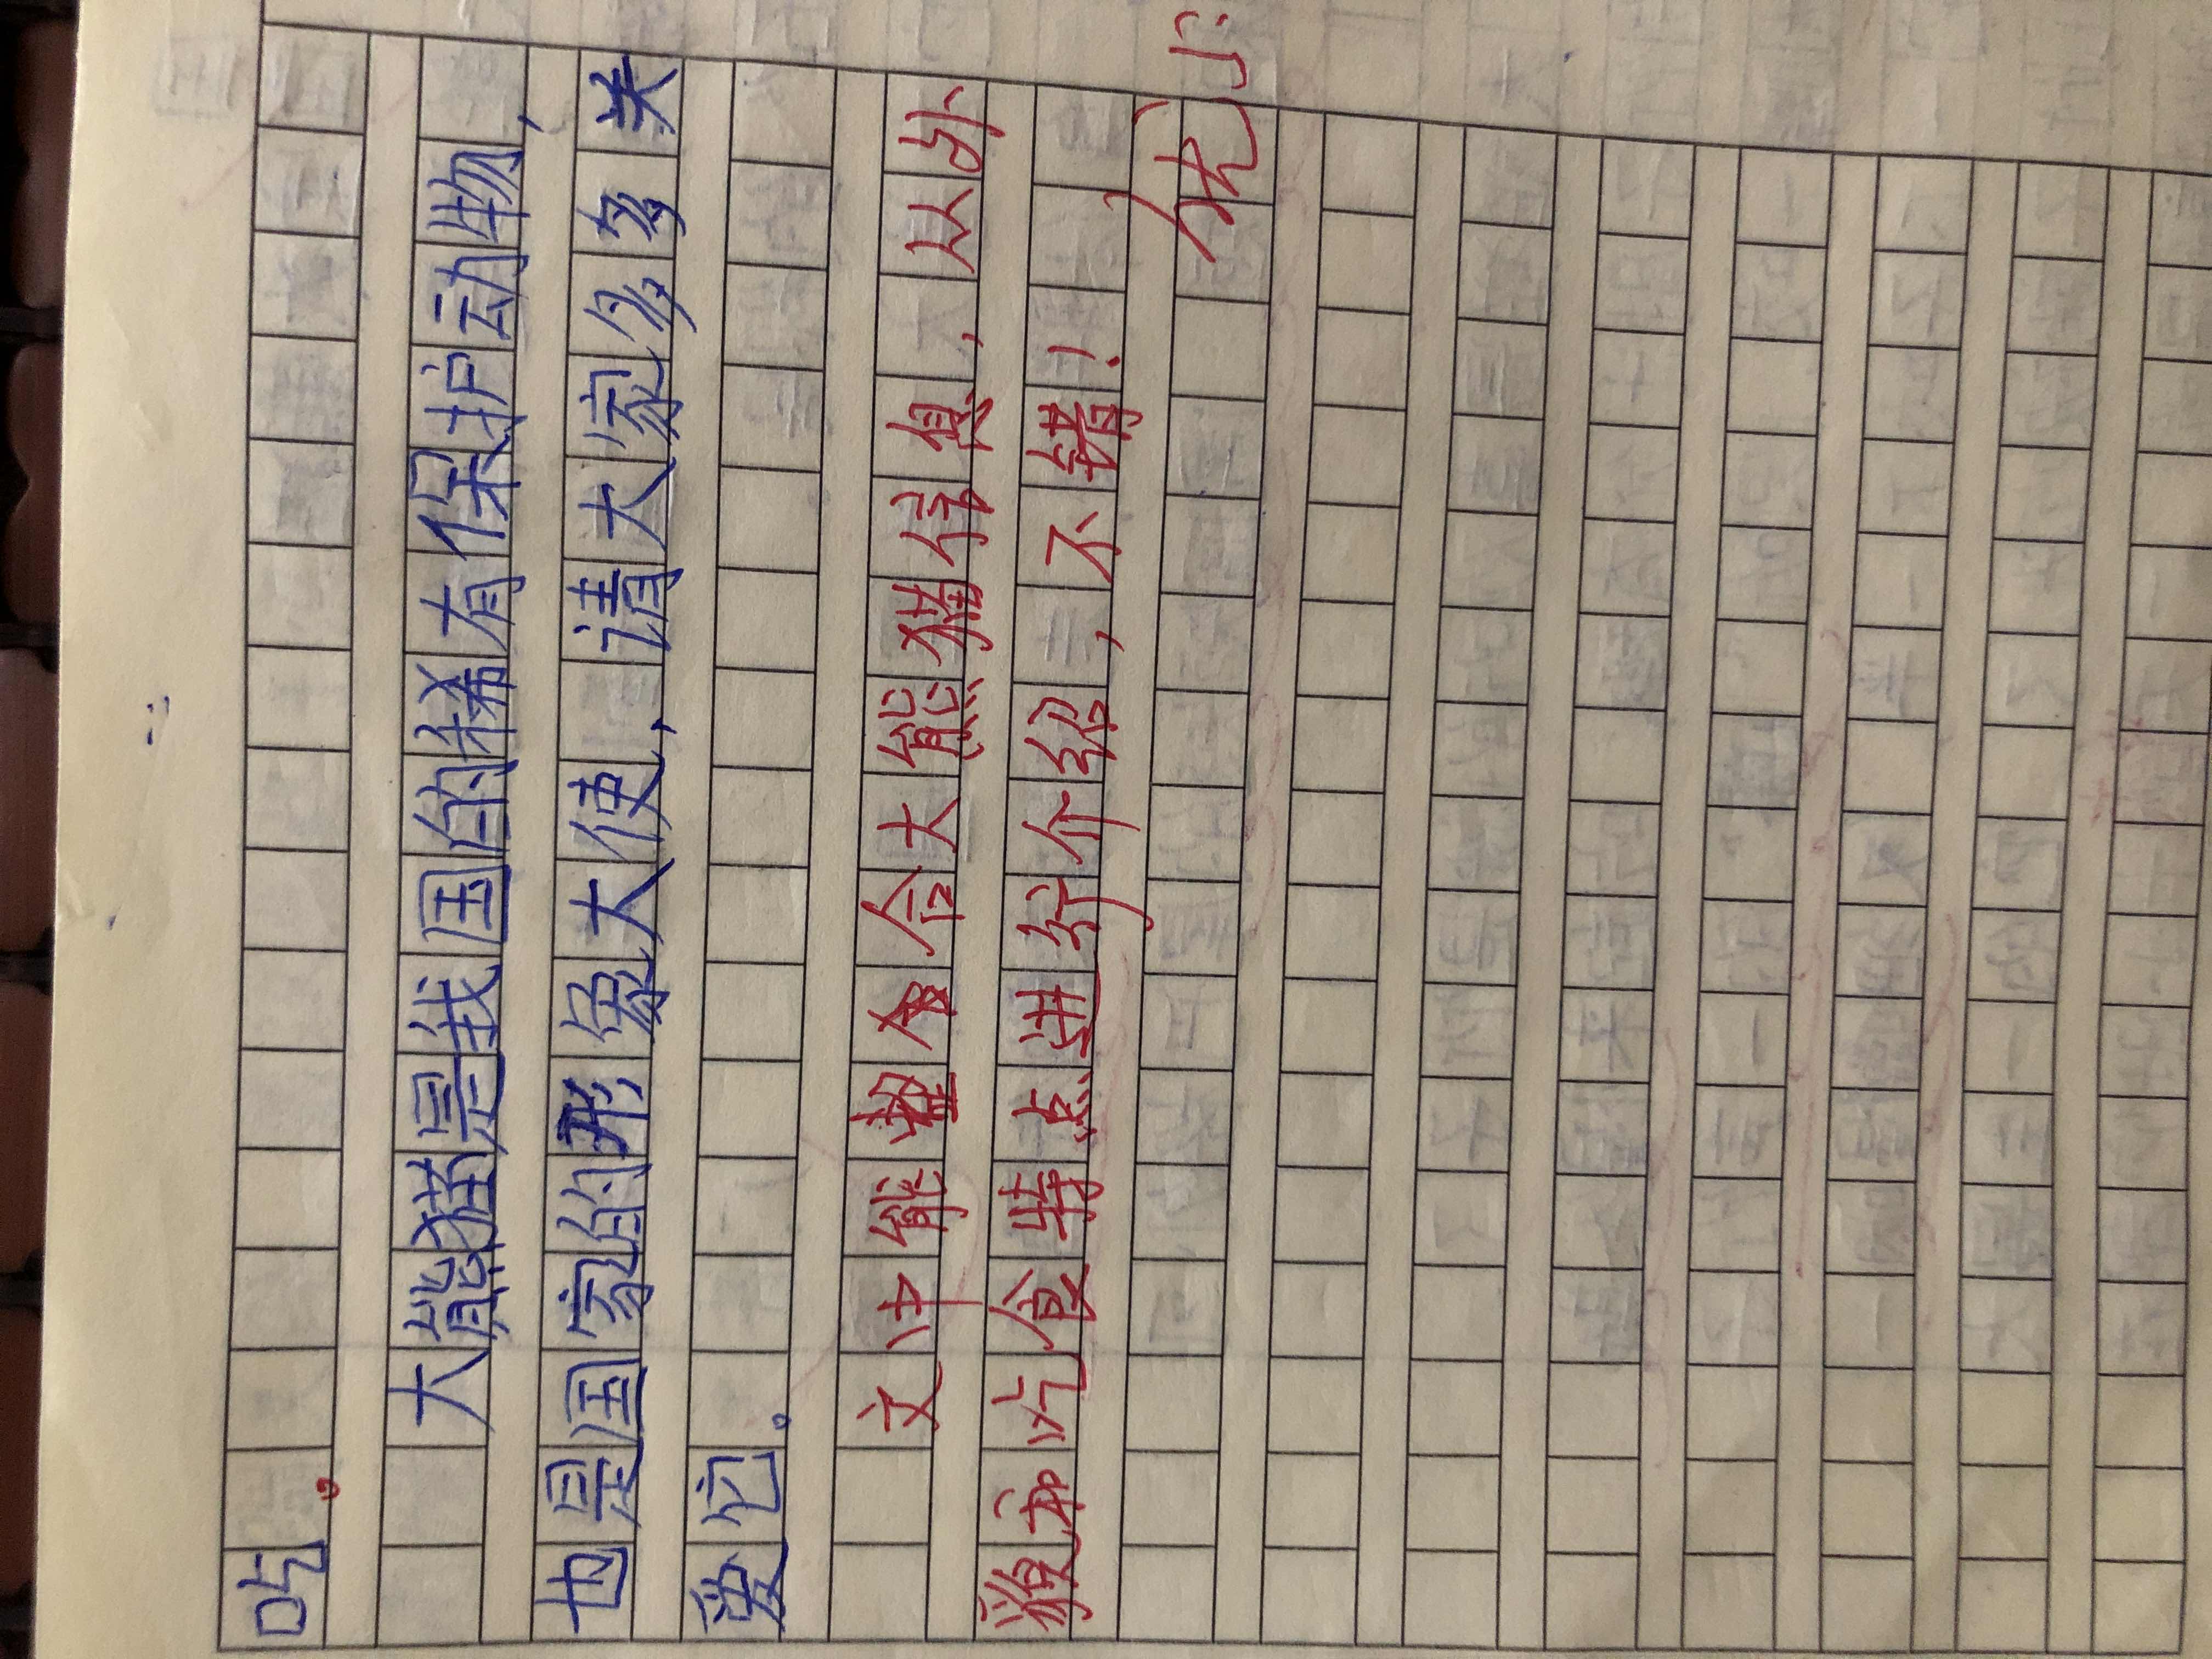 吃。
大熊猫是我国的稀有保护动物,
也是国家的形象大使,请大家多多关
爱它。
文中能整合大熊猫信息,以外
貌和吃食特点进行介绍,不错!
优